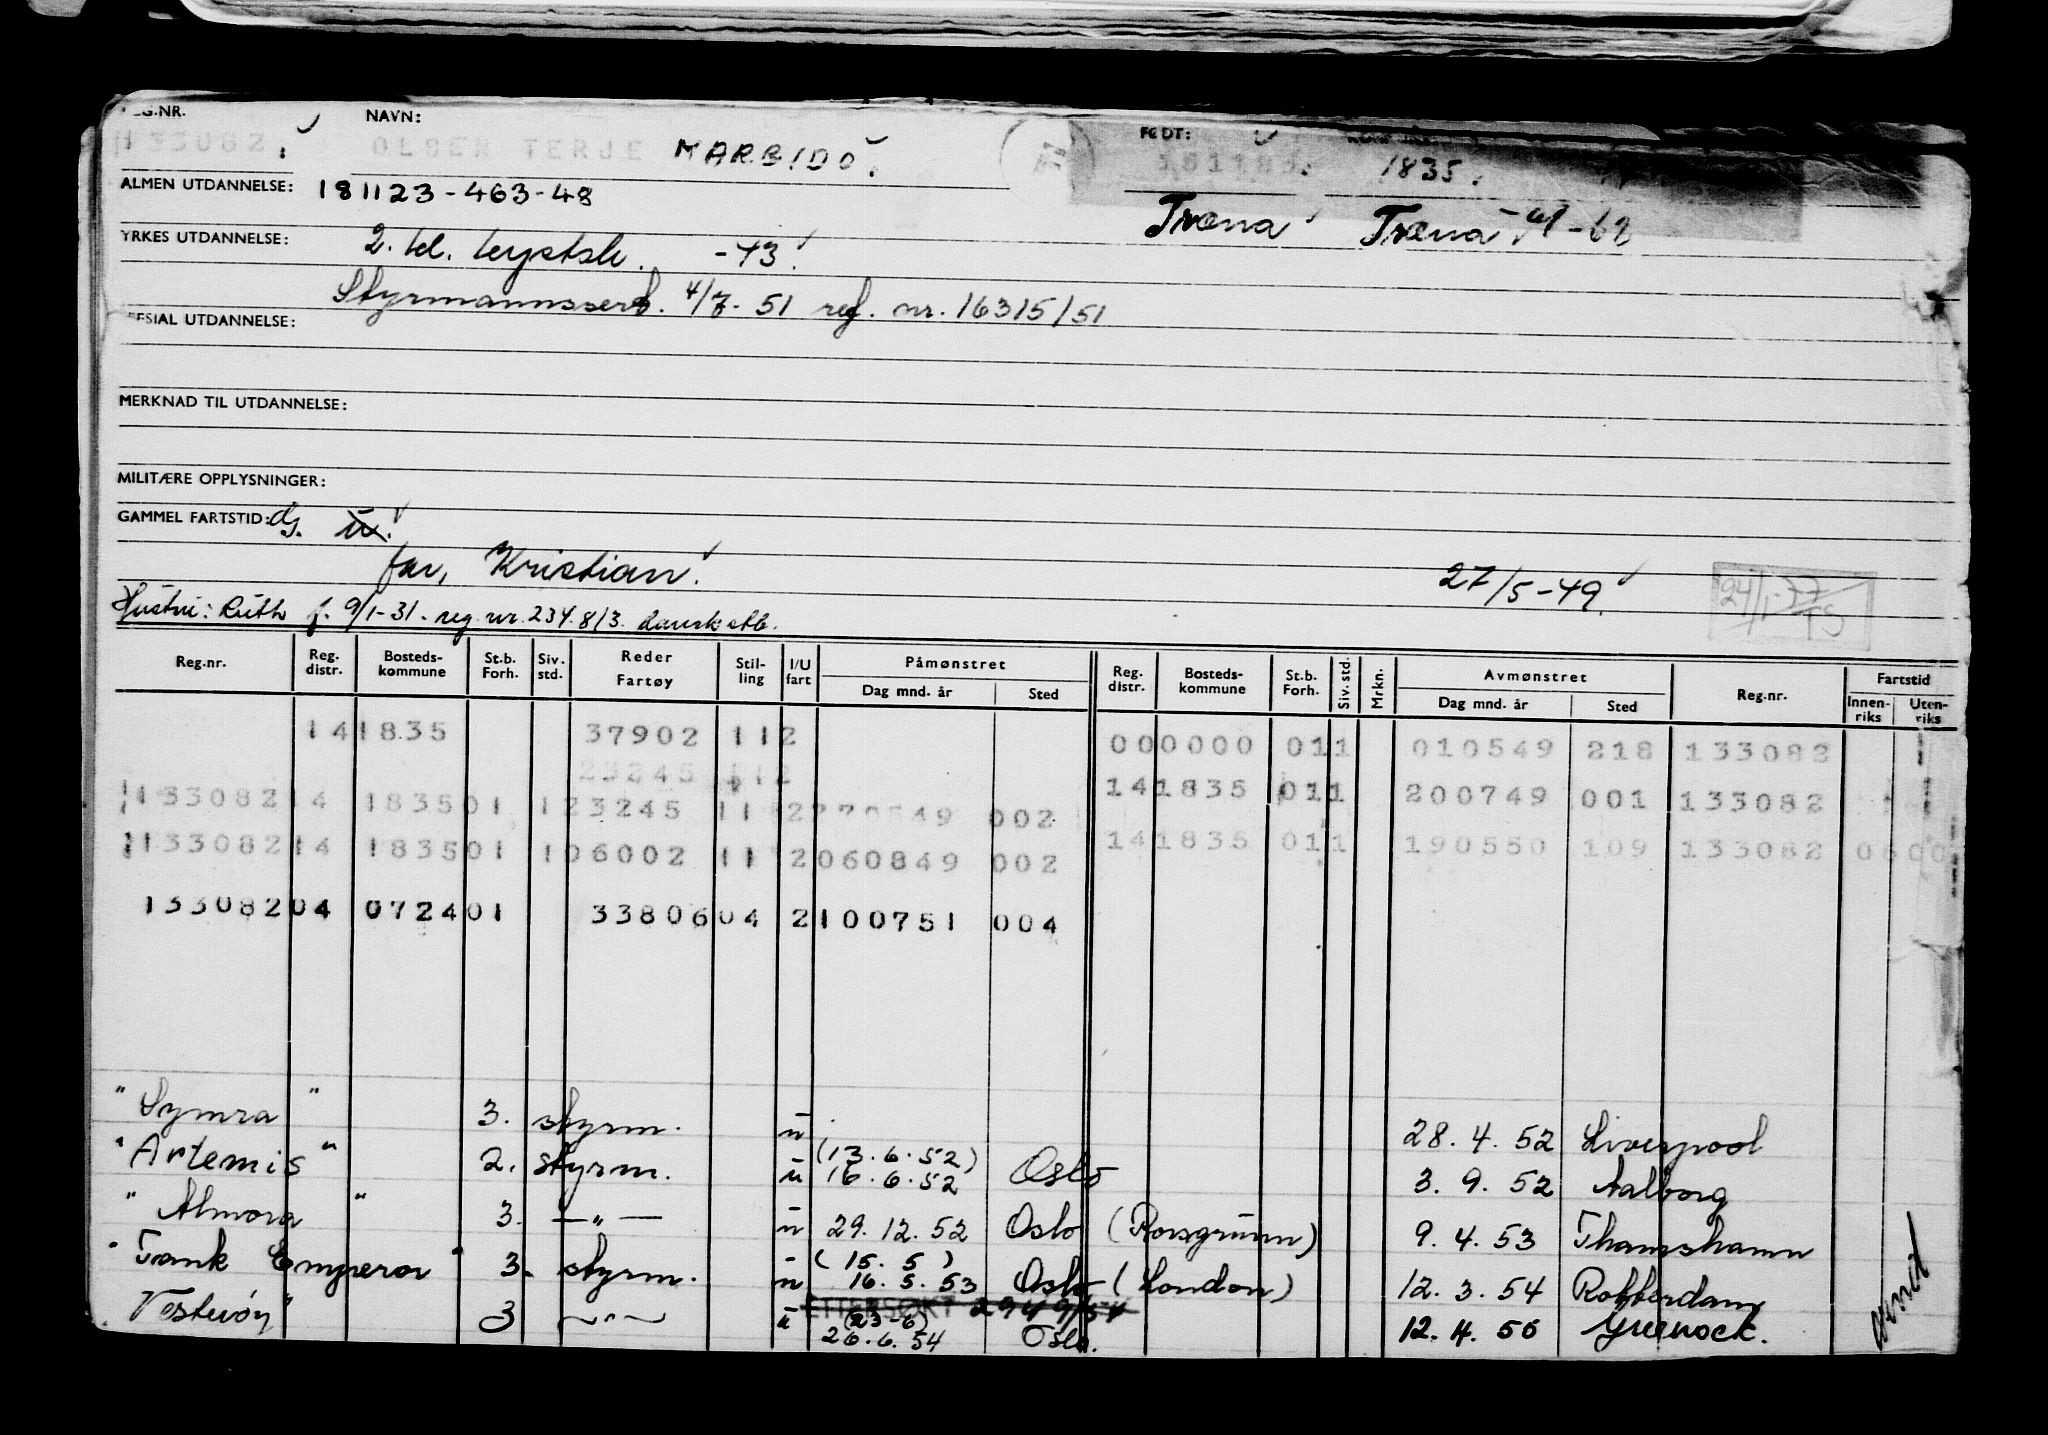 REG.NR. NAVN: FØDT:
133082. OLSEN TERJE MARBIDO. 1835.
ALMEN UTDANNELSE: 181123-463-48
Træna Træna
YRKES UTDANNELSE: 2. kl. -43
Styrmannssert. 4/7-51 ref. nr. 16315/51
SPESIAL UTDANNELSE:
MERKNAD TIL UTDANNELSE:
MILITÆRE OPPLYSNINGER:
GAMMEL FARTSTID:
far, Kristian. 27/5-49. 24/1-77 TS
Hustru: Ruth f. 9/1-31. reg.nr. 234.813. dansk stb.
Reg.nr. Reg. distr. Bosteds-kommune St.b. Forh. Siv. std. Reder Fartøy Stil-ling I/U fart Påmønstret Reg. distr. Bosteds-kommune St.b. Forh. Siv. std. Mrkn. Avmønstret Reg.nr. Fartstid
Dag mnd. år Sted Dag mnd. år Sted Innen-riks Uten-riks
141835 37902 112 000000 011 010549 218 133082
23245 112
133082 14 1835 01 1 23245 11 2 270549 002 141835 011 200749 001 133082
133082 14 1835 01 1 06002 11 2 060849 002 141835 011 190550 109 133082 0600
133082 04 0724 01 33806 04 2 100751 004
"Symra" 3. styrm. u 28.4.52 Liverpool
"Artemis" 2. styrm. u (13.6.52) 16.6.52 Oslo 3.9.52 Aalborg
"Almora" 3. —"— u 29.12.52 Oslo (Porsgrunn) 9.4.53 Thamshamn
"Tank Emperor" 3. styrm. u (15.5) 16.5.53 Oslo (London) 12.3.54 Rotterdam
ETTERSØKT
Vesterøy" 3 —"— u (23-6) 26.6.54 Oslo. 12.4.56 Greenock.